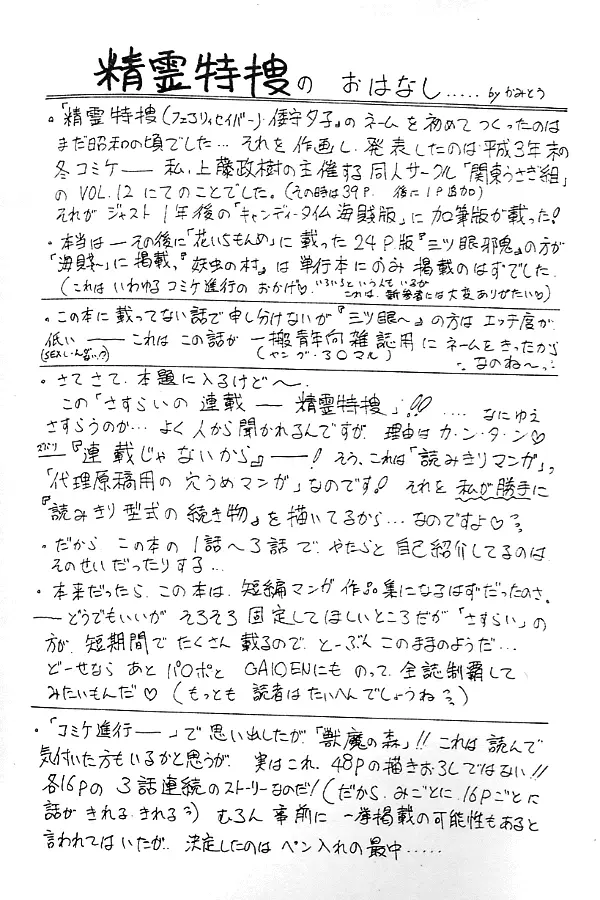 精霊特捜の おはなし..... by かみとう
。「精霊特捜(フェアリィセイバー)・倭守夕子』のネームを初めてつくったのは
まだ昭和の頃でした… それを作画し、発表したのは平成3年末の
冬コミケ── 私、上藤政樹の主催する同人サークル「関東うさぎ組」
の VOL.12 にてのことでした。(その時は39P. 後に1P追加)
それが ジャスト 1年後の「キャンディータイム海賊版」に 加筆版が載った!
・本当は ─ その後に「花いちもんめ」に載った 24P版『三ツ眼邪鬼』の方が
「海賊〜」に掲載、『妖虫の村』は 単行本にのみ 掲載のはずでした.
(これは いわゆる コミケ進行の おかげ♡. いろいろという人もいるが これは、新参者には大変ありがたい♡)
・この本に 載ってない話で申し分けないが『三ツ眼〜』の方は エッチ度が
低い ── これは この話が 一搬青年向雑誌用に ネームをきったから
(SEXしーんなゐ?) (ヤング・30マル) ・なのね〜・?
・ さてさて. 本題に入るけど〜.
この「さすらいの 連載 ─ 精霊特捜」!! .... なにゆえ
さすらうのか… よく 人から聞かれるんですが、理由は カ・ン・タ・ン♡
ズバリ 『連載じゃないから』──! そう、これは「読みきりマンガ」,
「代理原稿用の 穴うめマンガ」なのです! それを 私が勝手に
『読みきり型式の続き物』を描いてるから… なのですよ♡?
・だから この本の 1話〜3話 で. やたらと 自己紹介してるのは
そのせいだったりする…
・ 本来だったら、この本は、短編マンガ作品集になるはずだったのさ.
── どうでもいいが そろそろ 固定してほしいところだが「さすらい」の
方が、短期間で たくさん 載るので、と〜ぶん このままのようだ…
ど〜せなら あと パロポと GAIDENにも のって、全誌制覇して
みたいもんだ♡ (もっとも 読者は たいへんでしょうね?)
・「コミケ進行──」で思い出したが、「獣魔の森」!! これは 読んで
気付いた方もいるかと思うが、実はこれ、48Pの描きおろしではない!!
各16Pの 3話連続のストーリーなのだ! (だから、みごとに 16Pごとに
話が きれる.きれる?) むろん 事前に 一挙掲載の可能性もあると
言われてはいたが、決定したのは ペン入れの 最中.....